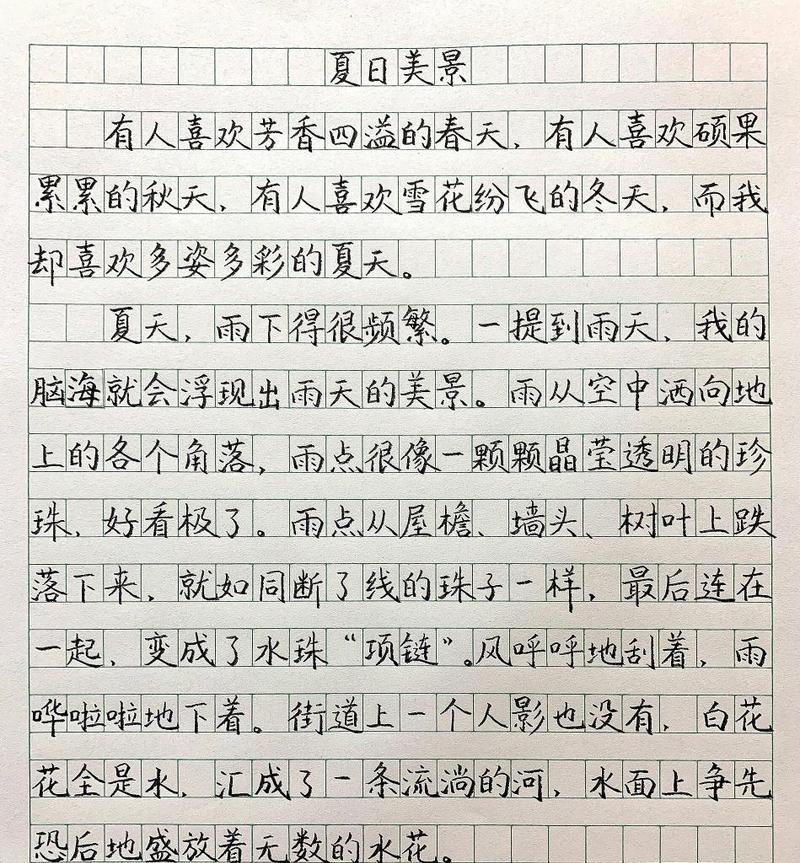 夏日美景
有人喜欢芳香四溢的春天，有人喜欢硕果
累累的秋天，有人喜欢雪花纷飞的冬天，而我
却喜欢多姿多彩的夏天。
夏天，雨下得很频繁。一提到雨天，我的
脑海就会浮现出雨天的美景。雨从空中洒向地
上的各个角落，雨点很像一颗颗晶莹透明的珍
珠，好看极了。雨点从屋檐、墙头、树叶上跌
落下来，就如同断了线的珠子一样，最后连在
一起，变成了水珠“项链”。风呼呼地刮着，雨
哗啦啦地下着。街道上一个人影也没有，白花
花全是水，汇成了一条流淌的河，水面上争先
恐后地盛放着无数的水花。